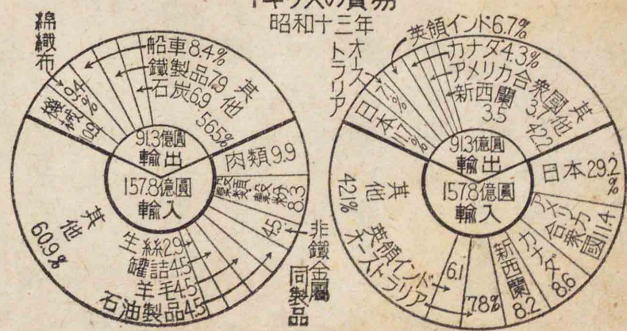 イギリスの貿易
昭和十三年
綿織布
9.4%
機械
10.9
船車8.4%
鐵製品7.9
石炭6.9
其他
56.5%
91.3億圓
輸出
157.8億圓
輸入
肉類9.9
穀類穀粉
8.3
4.5
非鐵金屬
同製品
其他
60.9%
生絲2.9
罐詰4.5
羊毛4.5
石油製品4.5
オーストラリア
7.1%
英領インド6.7%
カナダ4.3%
アメリカ合衆國
3.7
新西蘭
3.5
日本
11.7%
其他
42.2
91.3億圓
輸出
157.8億圓
輸入
日本29.2%
アメリカ合衆國11.4
カナダ
8.6
新西蘭
8.2
7.8%
6.1
英領インド
オーストラリア
其他
42.1%